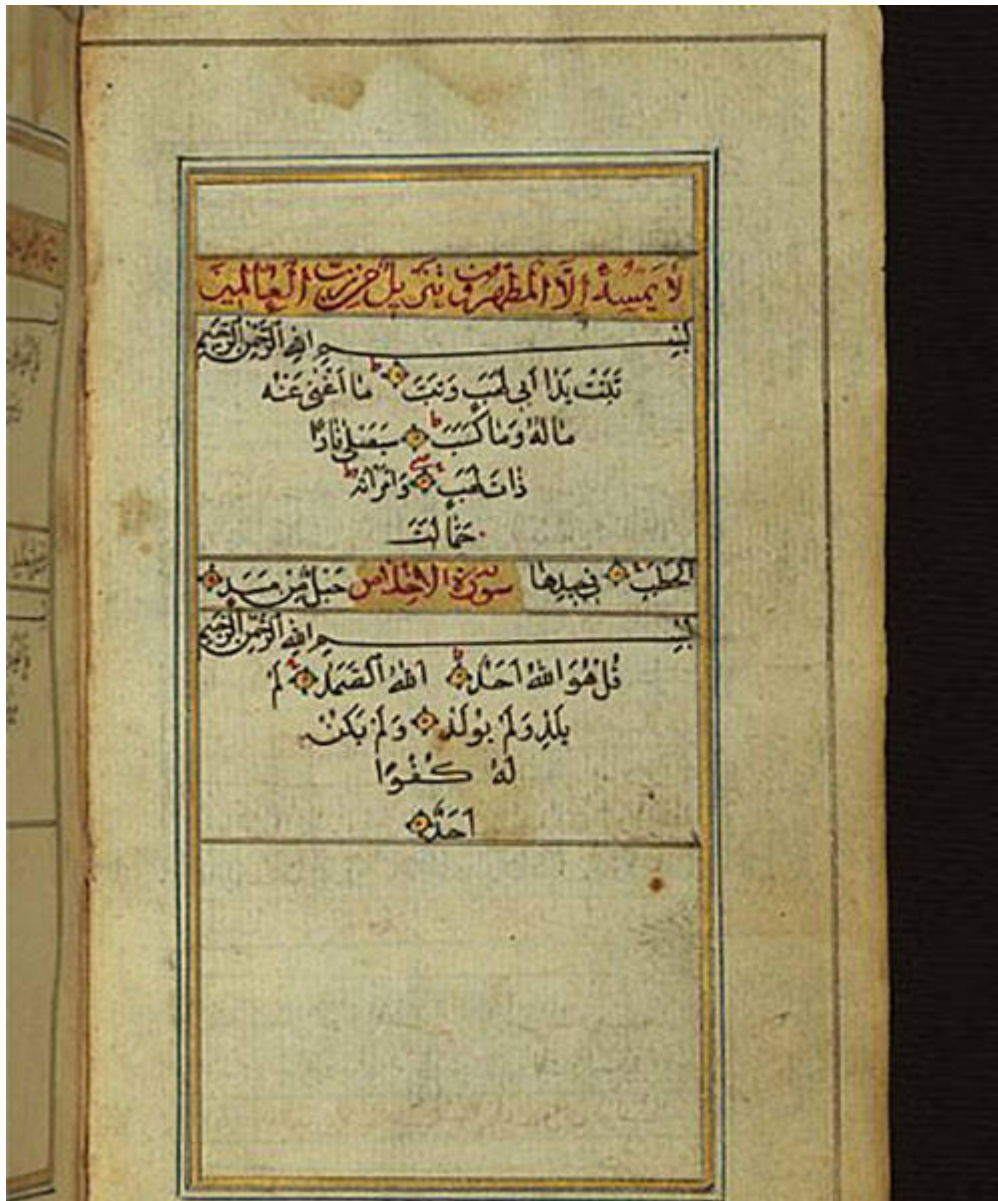 لا يمسه الا المطهرون تنزيل من رب العالمين
بسم الله الرحمن الرحيم
تبت يدا ابي لهب وتب ما اغنى عنه
ماله وما كسب سيصلى نارا
ذات لهب وامراته
حمالت
الحطب في جيدها سورة الاخلاص حبل من مسد
بسم الله الرحمن الرحيم
قل هو الله احد الله الصمد لم
يلد ولم يولد ولم يكن
له كفوا
احد